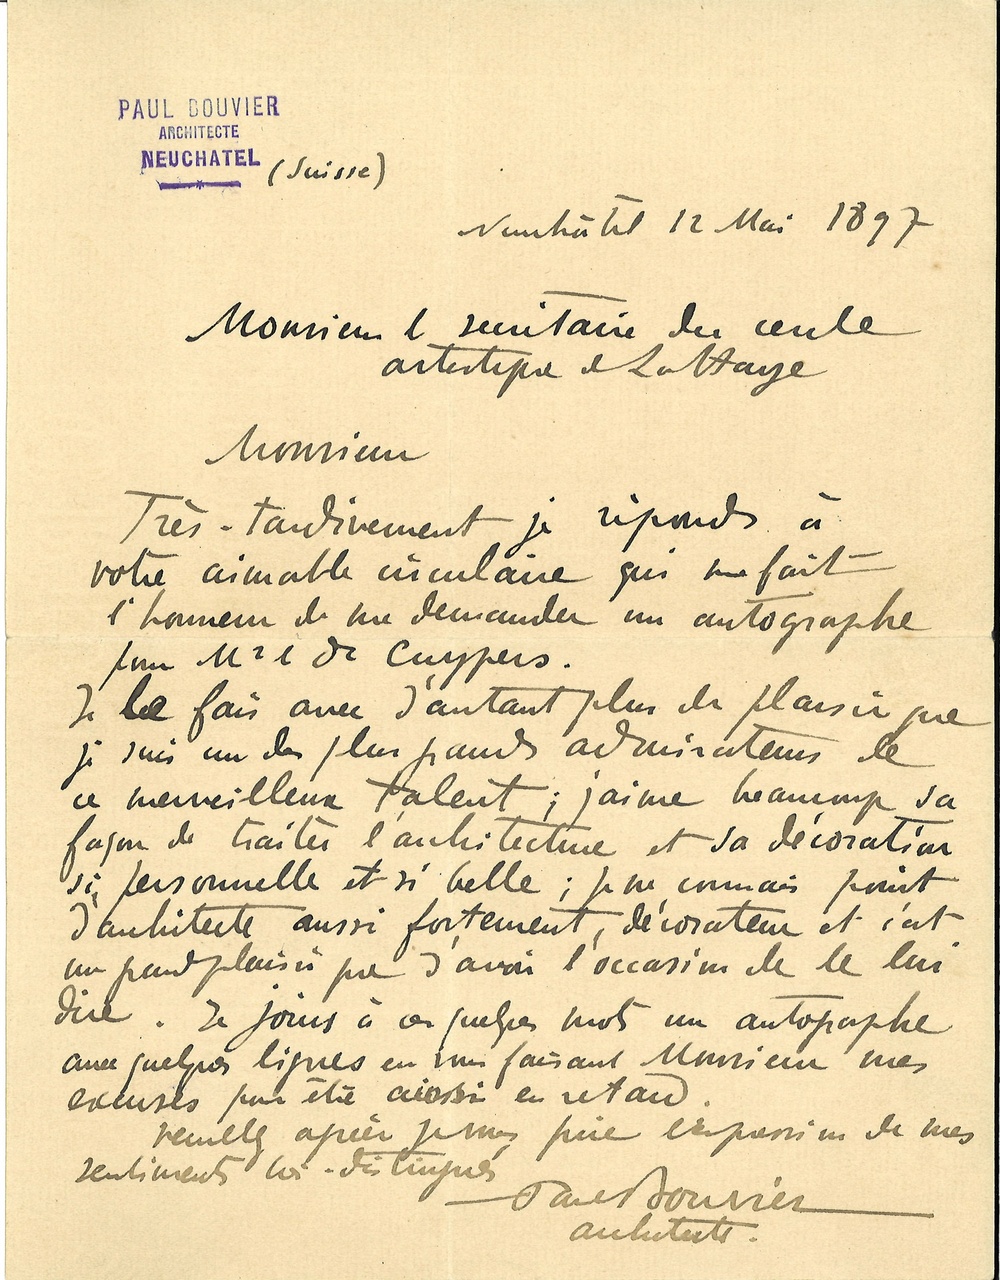 PAUL BOUVIER
ARCHITECTE
NEUCHATEL (Suisse)
Neuchâtel 12 Mai 1897
Monsieur le secrétaire du cercle
artistique de La Haye
Monsieur
Très-tardivement je réponds à
votre aimable circulaire qui me fait
l'honneur de me demander un autographe
pour Mr le Dr Cuypers.
Je le fais avec d'autant plus de plaisir que
je suis un des plus grands admirateurs de
ce merveilleux talent ; j'aime beaucoup sa
façon de traiter l'architecture et sa décoration
si personnelle et si belle ; je ne connais point
d'architecte aussi fortement décorateur et c'est
un grand plaisir que d'avoir l'occasion de le lui
dire. Je joins à ces quelques mots un autographe
avec quelques lignes en vous faisant Monsieur mes
excuses pour être aussi en retard.
veuillez agréer je vous prie l'expression de mes
sentiments très-distingués
Paul Bouvier
architecte.